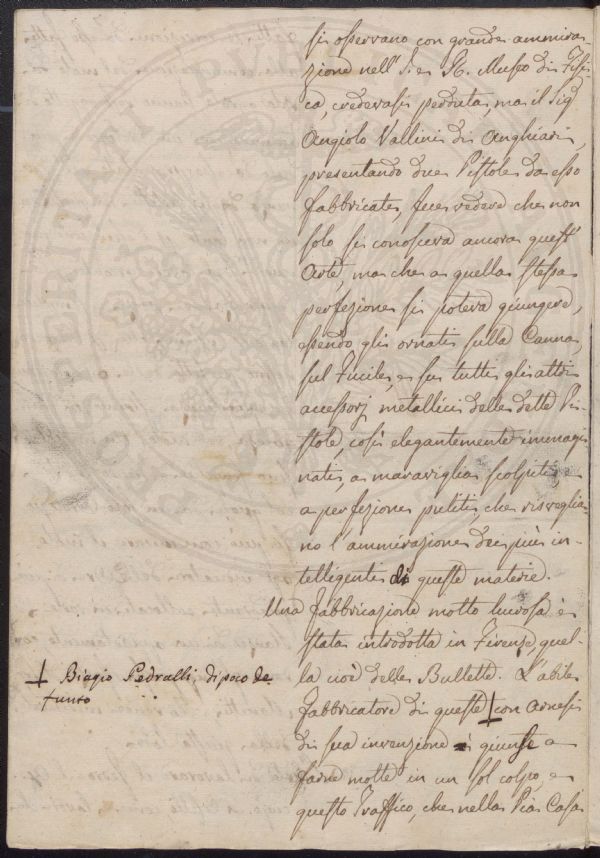 si osservano con grande ammira-
zione nell'I. e R. Museo di Fisi
ca, credevasi perduta, ma il Sig.
Angiolo Vallini di Anghiari,
presentando due Pistole da esso
fabbricate, fece vedere che non
solo si conosceva ancora quest'
Arte, ma che a quella stessa
perfezione si poteva giungere,
essendo gli ornati sulla Canna,
sul Fucile, e su tutti gli altri
accessorj metallici delle dette Pi-
stole, così elegantemente immagi
nati, a maraviglia scolpiti e
a perfezione puliti, che risveglia-
no l'ammirazione dei più in-
telligenti di queste materie.
Una fabbricazione molto lucrosa è
stata introdotta in Firenze, quel-
la cioè delle Bullette. L'abile
Fabbricatore di queste + con Arnesi
di sua invenzione giunse a
farne molte in un sol colpo, e
questo Traffico, che nella Pia Casa
+ Biagio Pedralli, di poco de-
funto